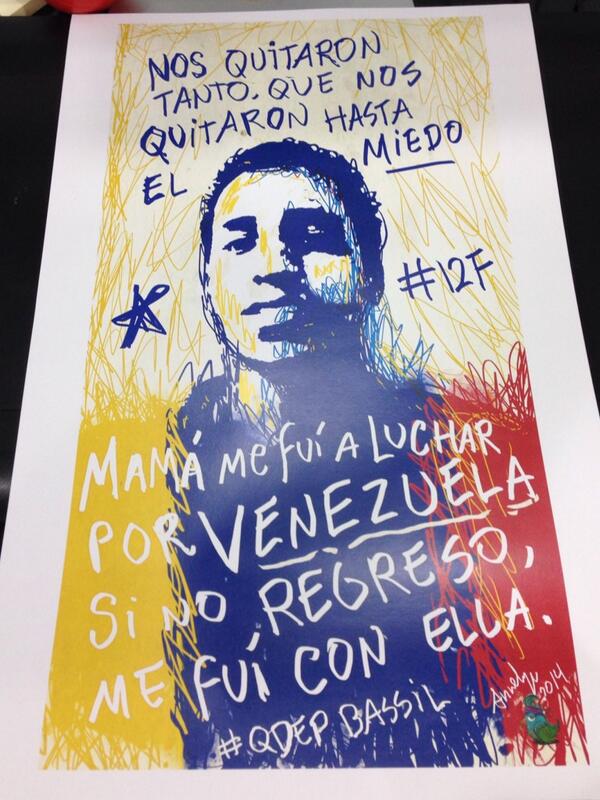 NOS QUITARON
TANTO. QUE NOS
QUITARON HASTA
EL MIEDO
#12F
MAMÁ ME FUÍ A LUCHAR
POR VENEZUELA
SI NO REGRESO,
ME FUÍ CON ELLA.
#QDEP BASSIL
2014